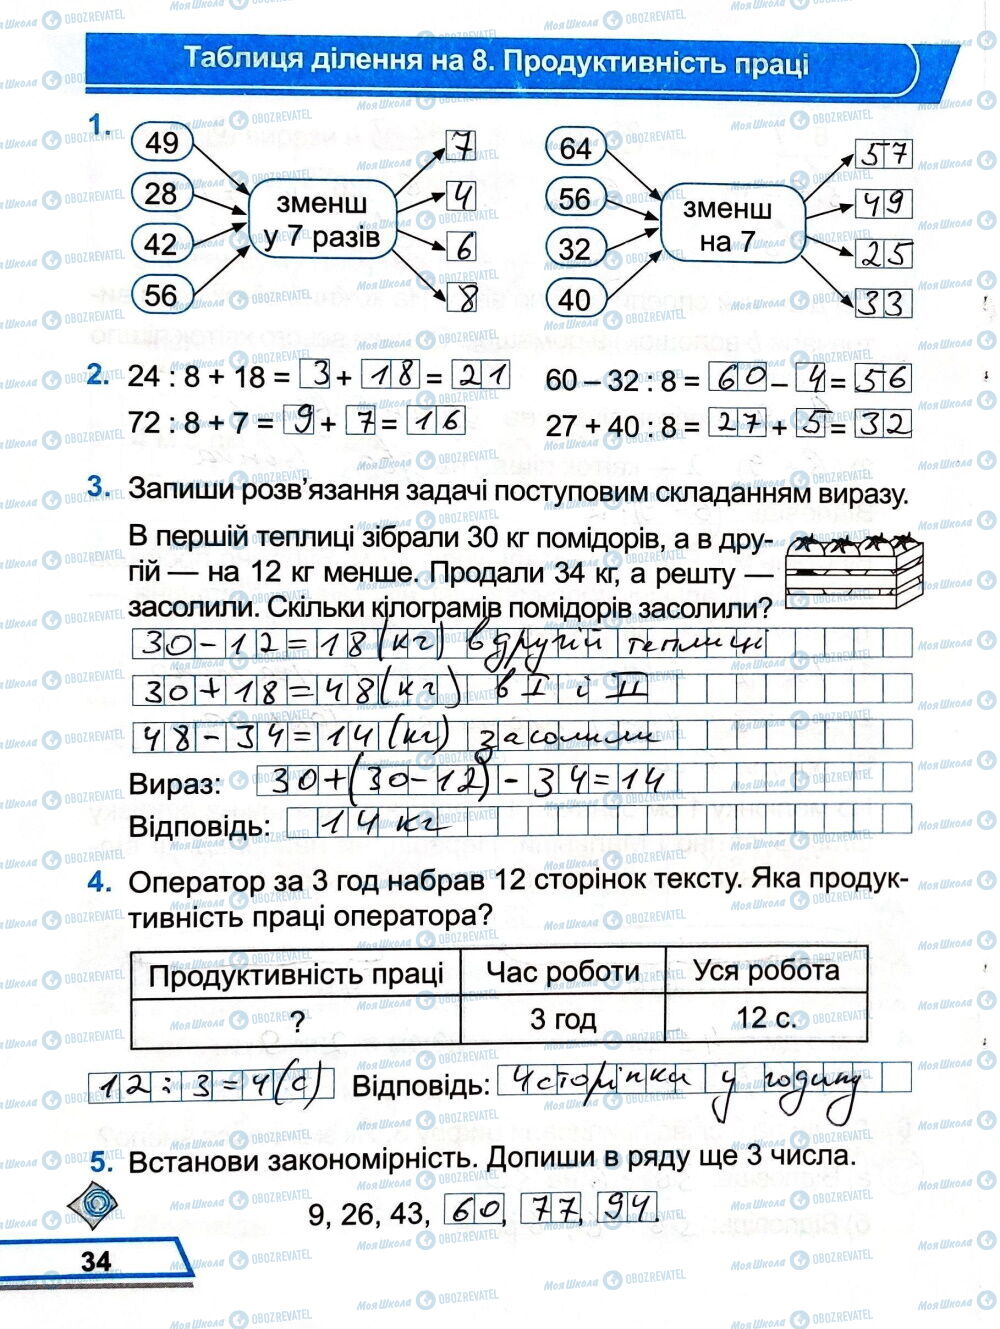 Таблиця ділення на 8. Продуктивність праці
1.
49 7 64 57
28 зменш у 7 разів 4 56 зменш на 7 49
42 6 32 25
56 8 40 33
2. 24 : 8 + 18 = 3 + 18 = 21 60 – 32 : 8 = 60 – 4 = 56
72 : 8 + 7 = 9 + 7 = 16 27 + 40 : 8 = 27 + 5 = 32
3. Запиши розв'язання задачі поступовим складанням виразу.
В першій теплиці зібрали 30 кг помідорів, а в дру-
гій — на 12 кг менше. Продали 34 кг, а решту —
засолили. Скільки кілограмів помідорів засолили?
30 – 12 = 18 (кг) в другій теплиці
30 + 18 = 48 (кг) в I і II
48 – 34 = 14 (кг) засолили
Вираз: 30 + (30 – 12) – 34 = 14
Відповідь: 14 кг
4. Оператор за 3 год набрав 12 сторінок тексту. Яка продук-
тивність праці оператора?
Продуктивність праці Час роботи Уся робота
? 3 год 12 с.
12 : 3 = 4 (с) Відповідь: 4 сторінки у годину
5. Встанови закономірність. Допиши в ряду ще 3 числа.
9, 26, 43, 60, 77, 94.
34
МояШкола OBOZREVATEL